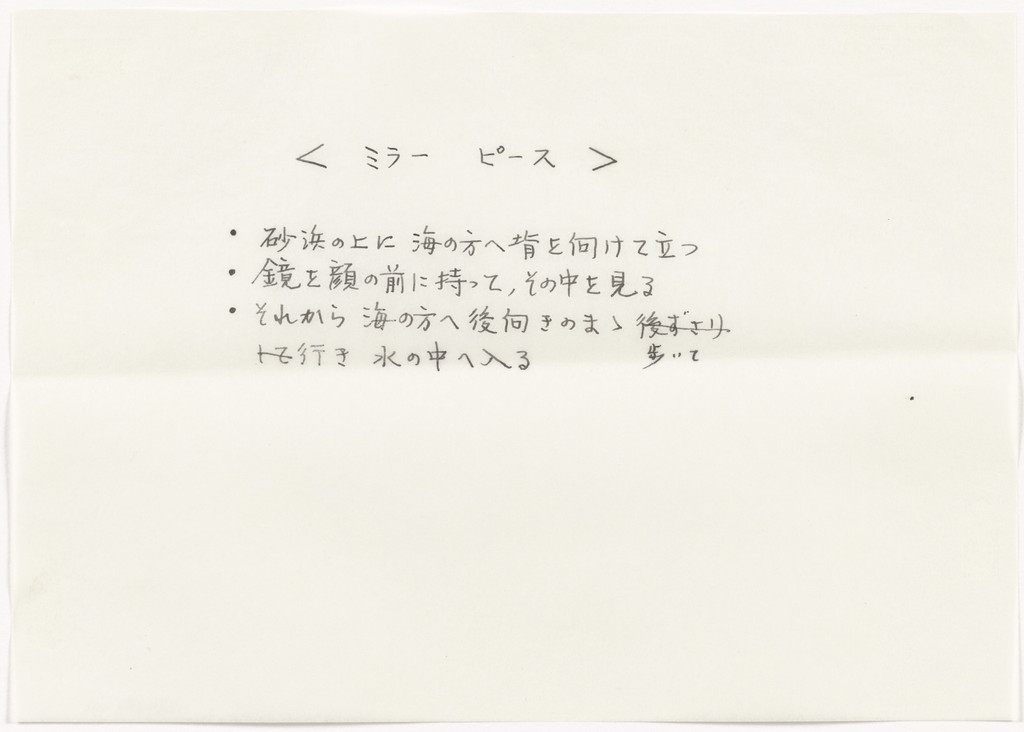 < ミラー ピース >
・ 砂浜の上に 海の方へ背を向けて立つ
・ 鏡を顔の前に持って,その中を見る
・ それから 海の方へ後向きのまゝ 後ずさり
行き 水の中へ入る 歩いて